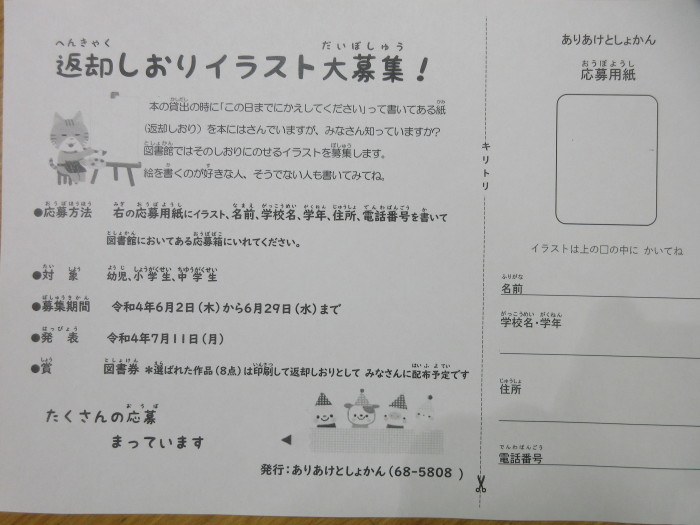 返却しおりイラスト大募集！
本の貸出の時に「この日までにかえしてください」って書いてある紙
（返却しおり）を本にはさんでいますが、みなさん知っていますか？
図書館ではそのしおりにのせるイラストを募集します。
絵を書くのが好きな人、そうでない人も書いてみてね。
●応募方法　右の応募用紙にイラスト、名前、学校名、学年、住所、電話番号を書いて
図書館においてある応募箱にいれてください。
●対　象　幼児、小学生、中学生
●募集期間　令和4年6月2日（木）から6月29日（水）まで
●発　表　令和4年7月11日（月）
●賞　図書券　＊選ばれた作品（8点）は印刷して返却しおりとして　みなさんに配布予定です
たくさんの応募
まっています
発行：ありあけとしょかん（68-5808 ）
キリトリ
ありあけとしょかん
応募用紙
イラストは上の□の中に かいてね
名前
学校名・学年
住所
電話番号